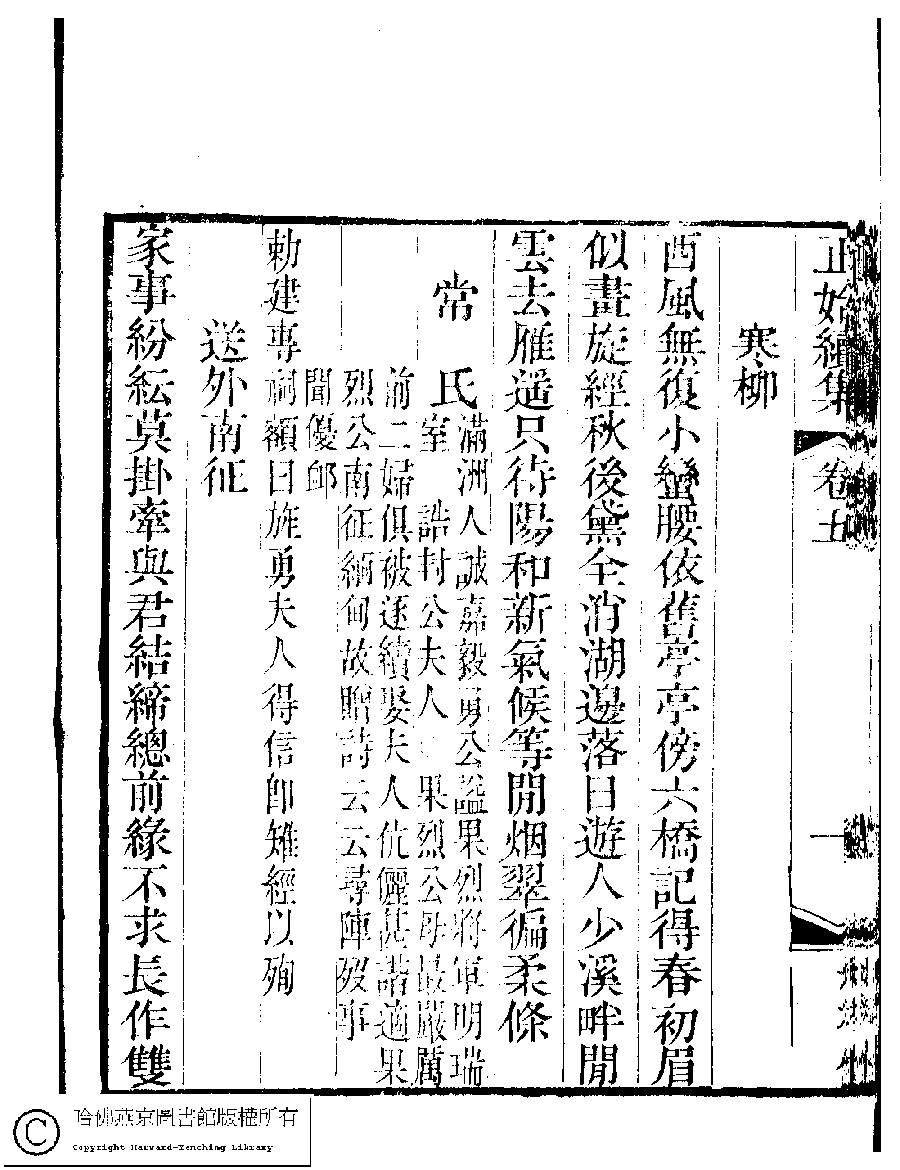 正始續集
卷五
一
寒柳
西風無復小蠻腰依舊亭亭傍六橋記得春初眉
似畫旋經秋後黛全消湖邊落日遊人少溪畔閒
雲去雁遥只待陽和新氣候等閒烟翠徧柔條
常氏
滿洲人誠嘉毅勇公諡果烈將軍明瑞
室 誥封公夫人 果烈公母最嚴厲
前二婦俱被逐續娶夫人伉儷甚諧適果
烈公南征緬甸故贈詩云云尋陣殁事
聞優邺
勅建專祠額曰旌勇夫人得信卽雉經以殉
送外南征
家事紛紜莫掛牽與君結締總前緣不求長作雙
哈佛燕京圖書館版權所有
Copyright Harvard-Yenching Library